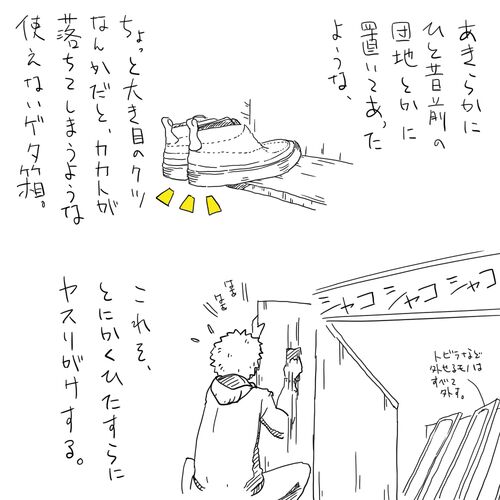 あきらかに
ひと昔前の
団地とかに
置いてあった
ような、
ちょっと大き目のクツ
なんかだと、カカトが
落ちてしまうような
使えないゲタ箱。
シャコ シャコ シャコ
トビラなど
外せるモノは
すべて
外す。
これを、
とにかくひたすらに
ヤスリがけする。